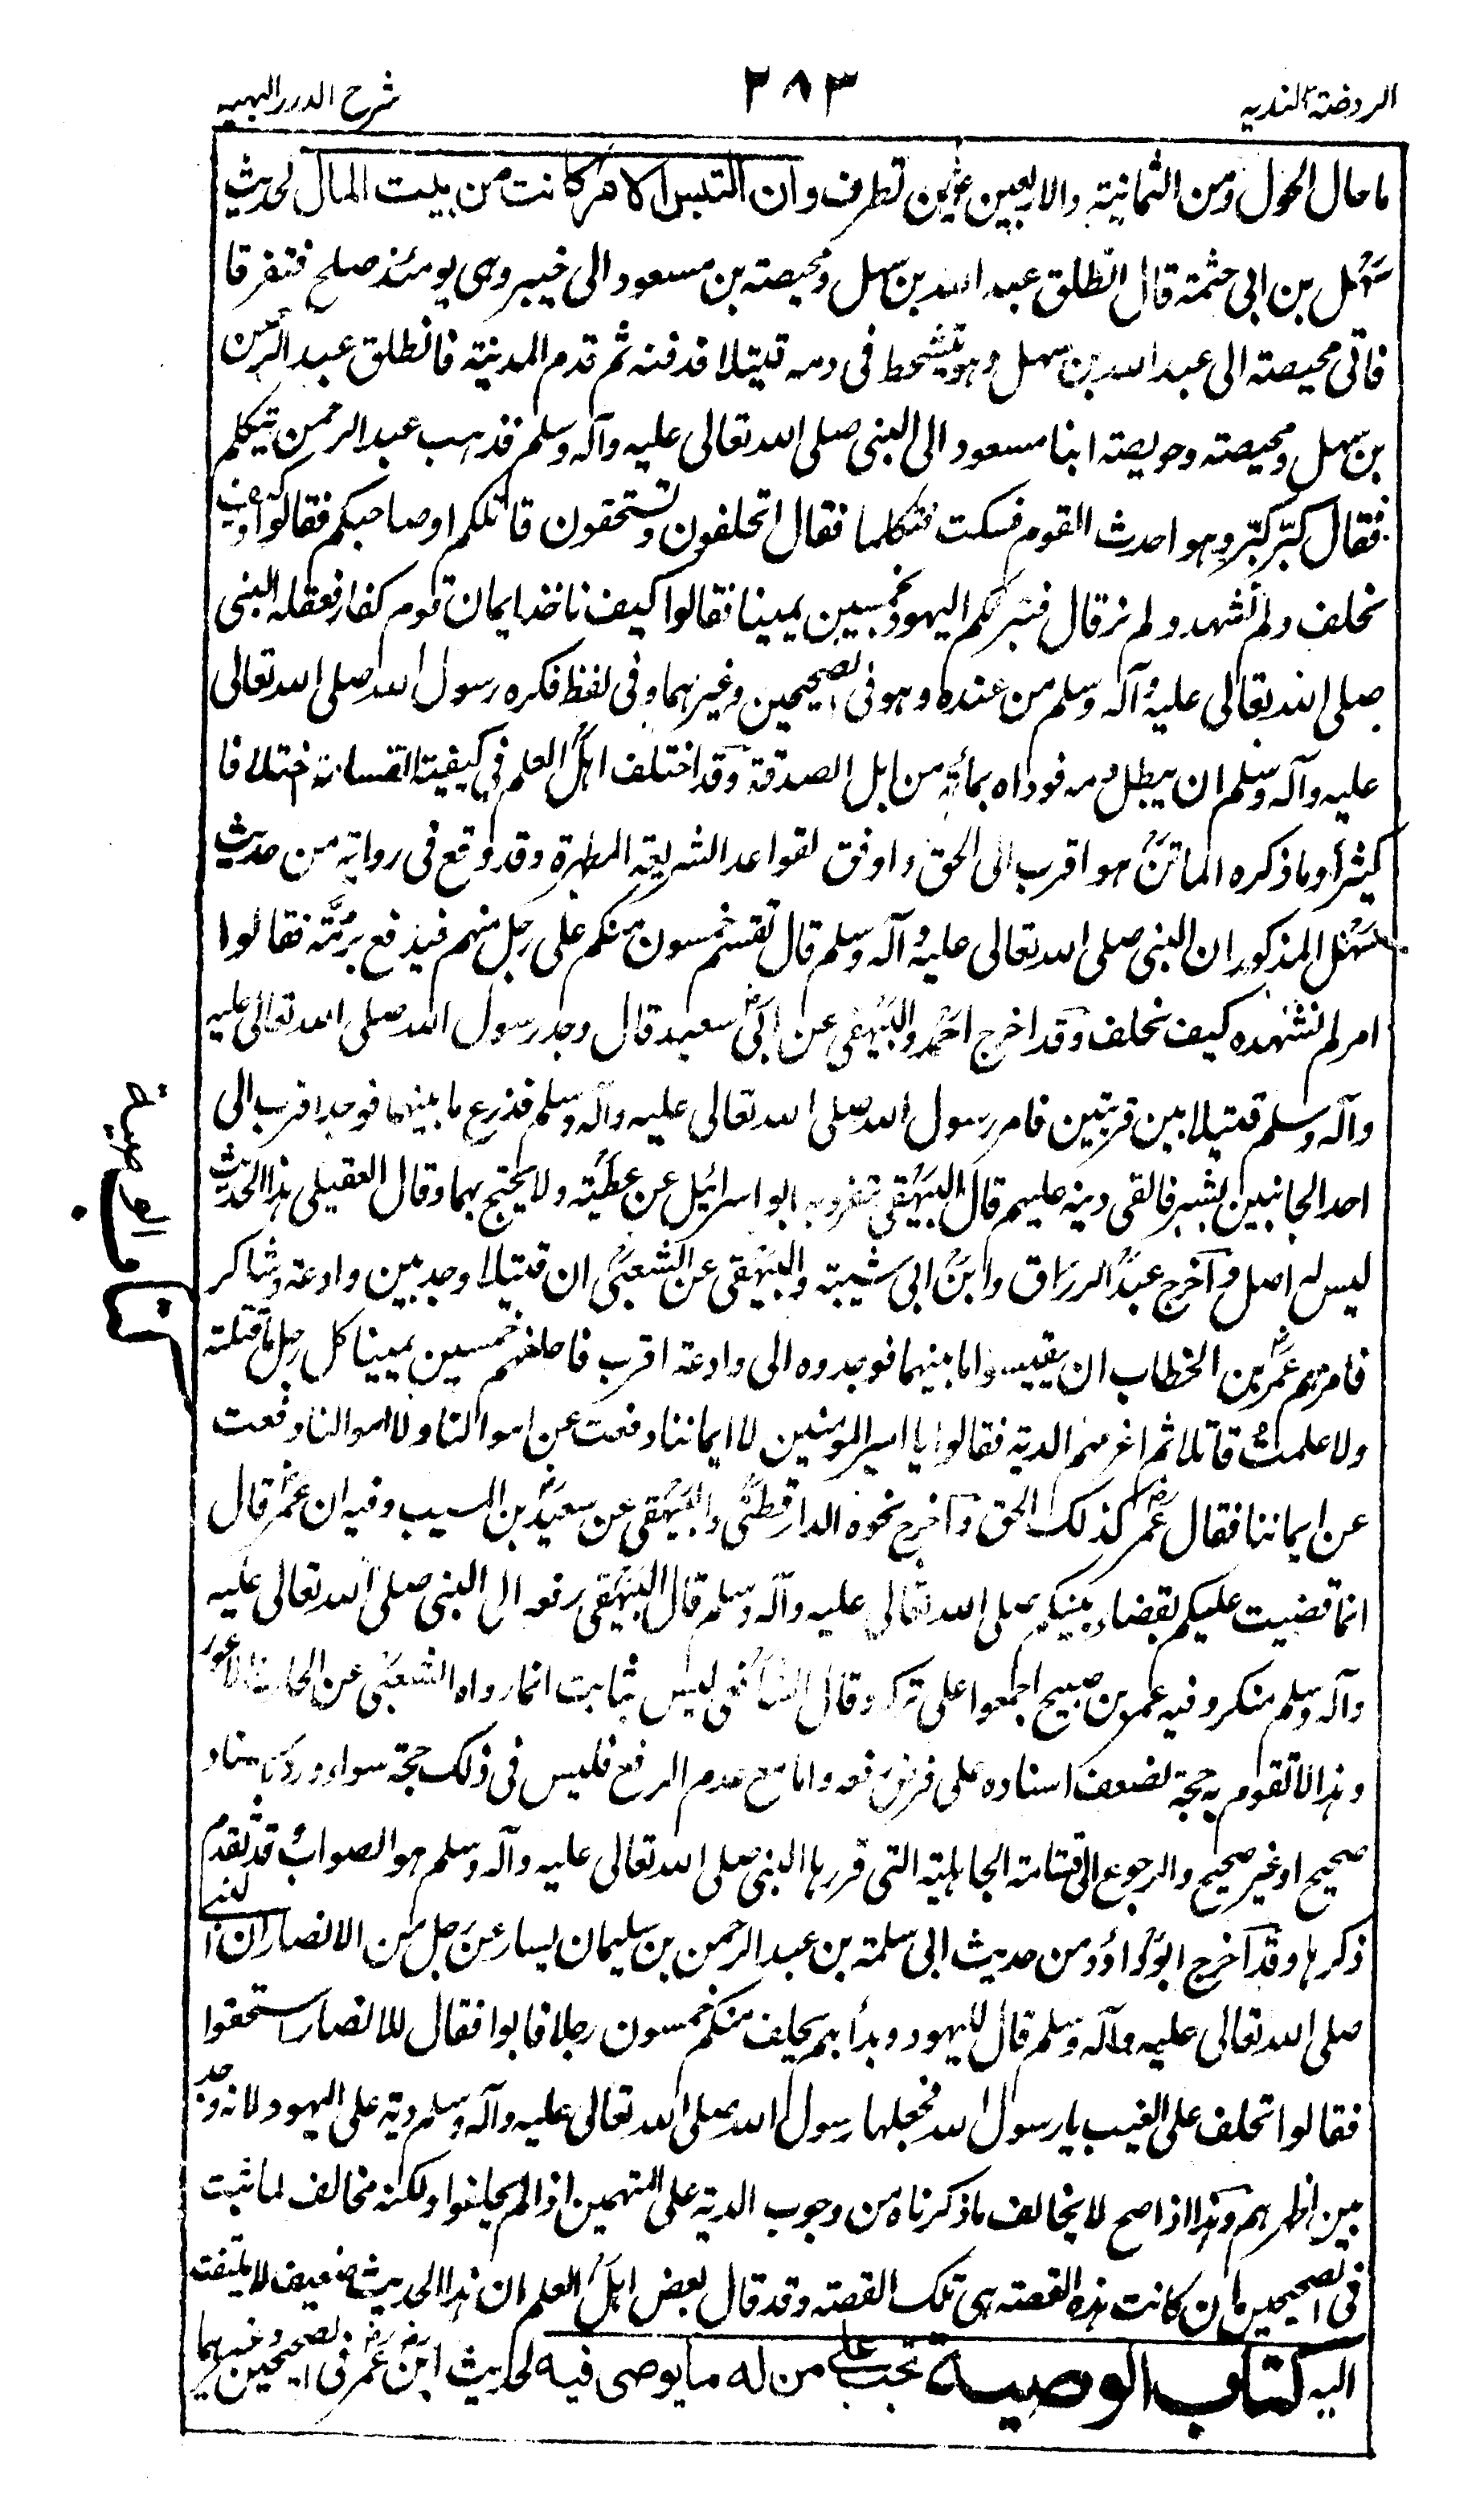 الروضة الندیه
٢٨٣
شرح الدرر البهیه
ما حال الحول ومن الثمانیة والاربعین تطرف وان التبس الامر کانت من بیت المال لحدیث
سهل بن ابی حثمة قال انطلق عبد الله بن سهل ومحیصة بن مسعود الی خیبر وهی یومئذ صلح فتفرقا
فاتی محیصة الی عبد الله بن سهل وهو یتشحط فی دمه قتیلا فدفنه ثم قدم المدینة فانطلق عبد الرحمن
بن سهل ومحیصة وحویصة ابنا مسعود الی النبی صلی الله تعالی علیه وآله وسلم فذهب عبد الرحمن یتکلم
فقال کبّر کبّر وهو احدث القوم فسکت فتکلما فقال اتحلفون وتستحقون قاتلکم او صاحبکم فقالوا وکیف
نحلف ولم نشهد ولم نر قال فتبرئکم الیهود بخمسین یمینا فقالوا کیف ناخذ ایمان قوم کفار فعقله النبی
صلی الله تعالی علیه وآله وسلم من عنده وهو فی الصحیحین وغیرهما وفی لفظ فکره رسول الله صلی الله تعالی
علیه وآله وسلم ان یبطل دمه فوداه بمائة من ابل الصدقة وقد اختلف اهل العلم فی کیفیة القسامة اختلافا
کثیرا وما ذکره الماتن هو اقرب الی الحق واوفق لقواعد الشریعة المطهرة وقد وقع فی روایة من حدیث
سهل المذکور ان النبی صلی الله تعالی علیه وآله وسلم قال تقسم خمسون منکم علی رجل منهم فیدفع برمّته فقالوا
امر لم نشهده کیف نحلف وقد اخرج احمد والبیهقی عن ابی سعید قال وجد رسول الله صلی الله تعالی علیه
وآله وسلم قتیلا بین قریتین فامر رسول الله صلی الله تعالی علیه وآله وسلم فذرع ما بینهما فوجد اقرب الی
احد الجانبین بشبر فالقی دیته علیهم قال البیهقی تفرد به ابو اسرائیل عن عطیة ولا یحتج بهما وقال العقیلی هذا الحدیث
لیس له اصل واخرج عبد الرزاق وابن ابی شیبة والبیهقی عن الشعبی ان قتیلا وجد بین وادعة وشاکر
فامرهم عمر بن الخطاب ان یقیسوا ما بینهما فوجدوه الی وادعة اقرب فاحلفهم خمسین یمینا کل رجل ما قتلته
ولا علمت قاتلا ثم اغرمهم الدیة فقالوا یا امیر المومنین لا ایماننا دفعت عن اموالنا ولا اموالنا دفعت
عن ایماننا فقال عمر کذلک الحق واخرج نحوه الدارقطنی والبیهقی عن سعید بن المسیب وفیه ان عمر قال
انما قضیت علیکم بقضاء نبیکم صلی الله تعالی علیه وآله وسلم قال البیهقی رفعه الی النبی صلی الله تعالی علیه
وآله وسلم منکر وفیه عمر بن صبیح اجمعوا علی ترکه وقال الشافعی لیس بثابت انما رواه الشعبی عن الحارث الاعور
وهذا لا تقوم به حجة لضعف اسناده علی فرض رفعه واما مع عدم الرفع فلیس فی ذلک حجة سواء ورد باسناد
صحیح او غیر صحیح والرجوع الی قسامة الجاهلیة التی قررها النبی صلی الله تعالی علیه وآله وسلم هو الصواب وقد تقدم
ذکرها وقد اخرج ابو داؤد من حدیث ابی سلمة بن عبد الرحمن بن سلیمان یسار عن رجل من الانصار ان النبی
صلی الله تعالی علیه وآله وسلم قال للیهود وبدأ بهم یحلف منکم خمسون رجلا فابوا فقال للانصار استحقوا
فقالوا تحلف علی الغیب یا رسول الله فجعلها رسول الله صلی الله تعالی علیه وآله وسلم دیة علی الیهود لانه وجد
بین اظهرهم وهذا اذا صح لا یخالف ما ذکرناه من وجوب الدیة علی المتهمین اذا لم یحلفوا ولکنه مخالف لما ثبت
فی الصحیحین ان کانت هذه القصة هی تلک القصة وقد قال بعض اهل العلم ان هذا الحدیث ضعیف لا یلتفت
الیه کتاب الوصیة تجب علی من له ما یوصی فیه لحدیث ابن عمر فی الصحیحین وغیرهما
کتاب الوصیة